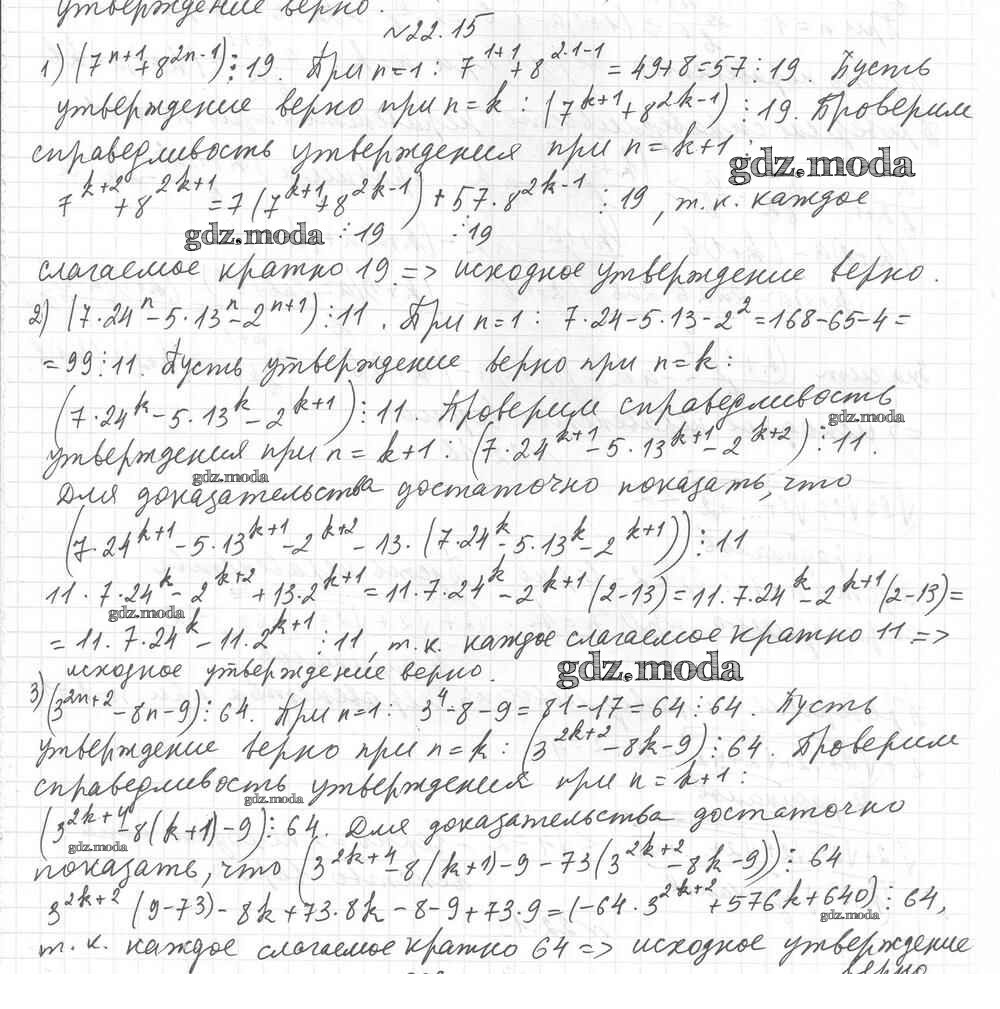 утверждение верно.
№22.15
1) (7^{n+1}+8^{2n-1})⋮19. При n=1: 7^{1+1}+8^{2·1-1}=49+8=57⋮19. Пусть
утверждение верно при n=k: (7^{k+1}+8^{2k-1})⋮19. Проверим
справедливость утверждения при n=k+1:
gdz.moda
7^{k+2}+8^{2k+1}=7(7^{k+1}+8^{2k-1})+57·8^{2k-1}⋮19, т.к. каждое
gdz.moda ⋮19 ⋮19
слагаемое кратно 19 => исходное утверждение верно.
2) (7·24^n-5·13^n-2^{n+1})⋮11. При n=1: 7·24-5·13-2^2=168-65-4=
=99⋮11. Пусть утверждение верно при n=k:
(7·24^k-5·13^k-2^{k+1})⋮11 Проверим справедливость
gdz.moda
утверждения при n=k+1: (7·24^{k+1}-5·13^{k+1}-2^{k+2})⋮11.
gdz.moda
Для доказательства достаточно показать, что
(7·24^{k+1}-5·13^{k+1}-2^{k+2}-13·(7·24^k-5·13^k-2^{k+1}))⋮11
11·7·24^k-2^{k+2}+13·2^{k+1}=11·7·24^k-2^{k+1}(2-13)=11·7·24^k-2^{k+1}(2-13)=
gdz.moda
=11·7·24^k-11·2^{k+1}⋮11, т.к. каждое слагаемое кратно 11 =>
исходное утверждение верно.
gdz.moda
3) (3^{2n+2}-8n-9)⋮64. При n=1: 3^4-8-9=81-17=64⋮64. Пусть
утверждение верно при n=k: (3^{2k+2}-8k-9)⋮64. Проверим
справедливость утверждения при n=k+1:
gdz.moda
(3^{2k+4}-8(k+1)-9)⋮64. Для доказательства достаточно
gdz.moda
показать, что (3^{2k+4}-8(k+1)-9-73(3^{2k+2}-8k-9))⋮64
3^{2k+2}(9-73)-8k+73·8k-8-9+73·9=(-64·3^{2k+2}+576k+640)⋮64,
gdz.moda
т.к. каждое слагаемое кратно 64 => исходное утверждение
верно